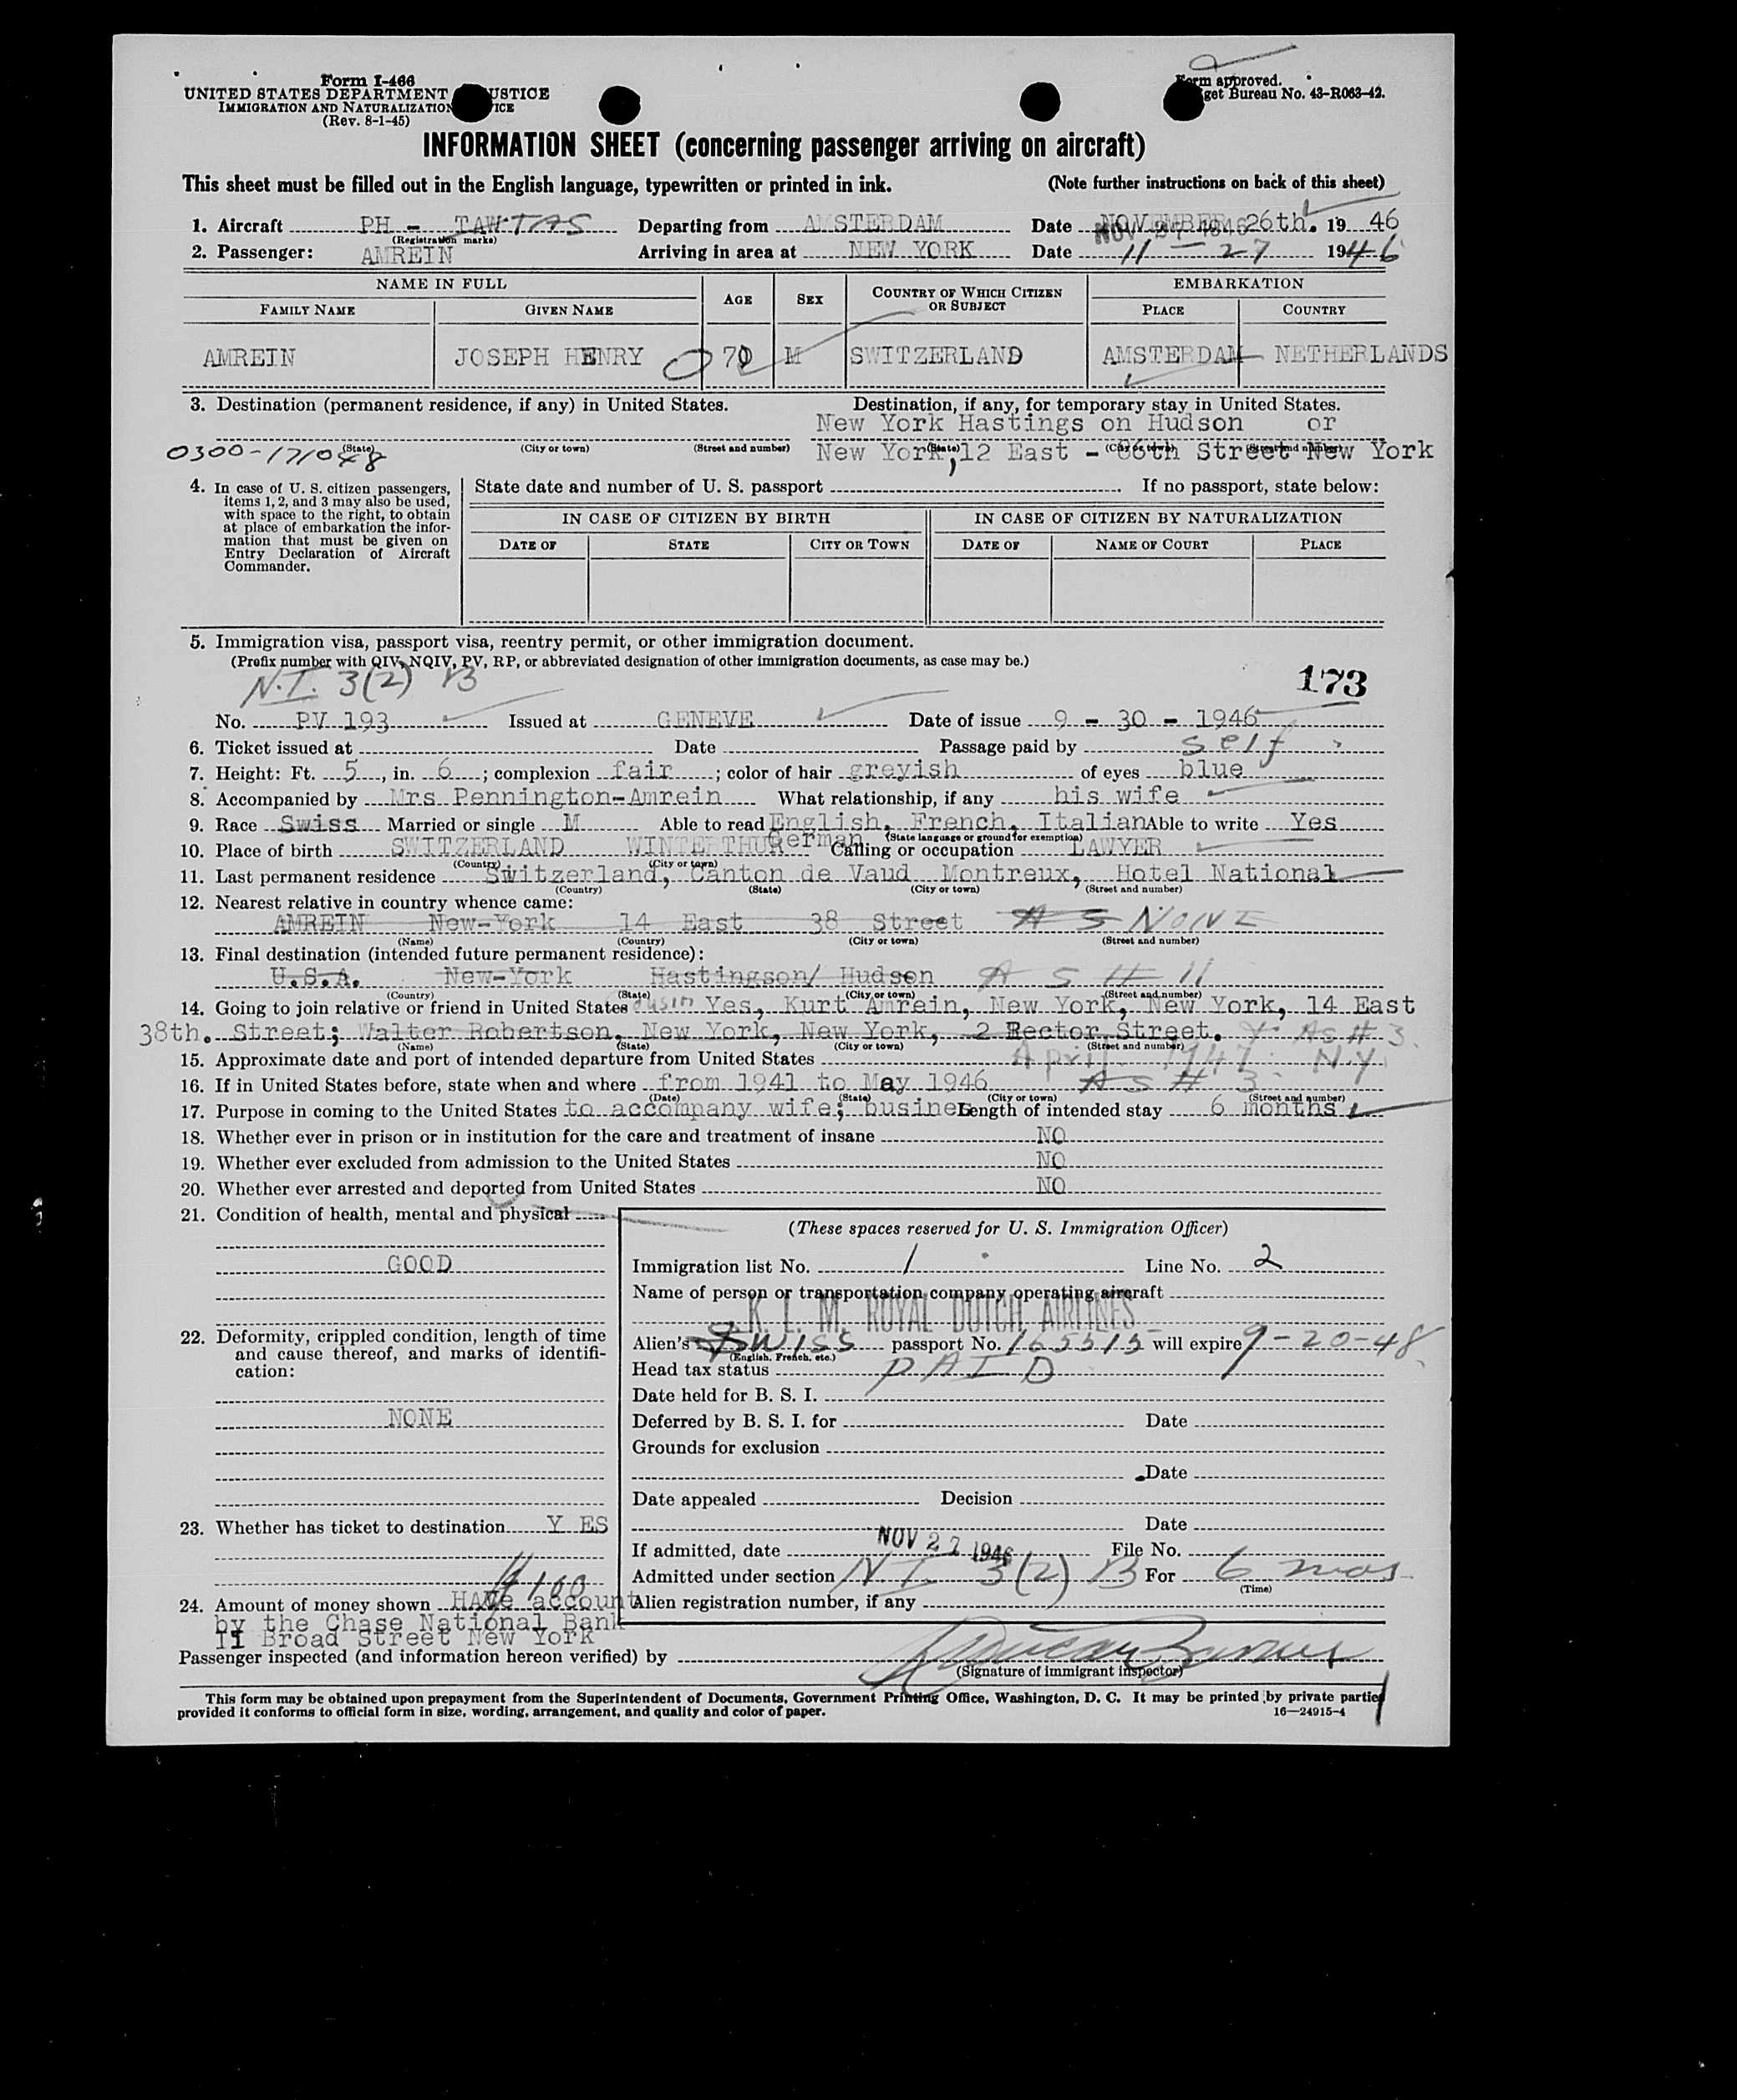 Form I-466
UNITED STATES DEPARTMENT USTICE
IMMIGRATION AND NATURALIZATION ICE
(Rev. 8-1-45)
Form approved.
get Bureau No. 43-R063-42.
INFORMATION SHEET (concerning passenger arriving on aircraft)
This sheet must be filled out in the English language, typewritten or printed in ink. (Note further instructions on back of this sheet)
1. Aircraft PH - TAW TAS Departing from AMSTERDAM Date NOVEMBER 26th. 19 46
(Registration marks)
2. Passenger: AMREIN Arriving in area at NEW YORK Date 11 - 27 1946
NAME IN FULL AGE SEX COUNTRY OF WHICH CITIZEN OR SUBJECT EMBARKATION
FAMILY NAME GIVEN NAME PLACE COUNTRY
AMREIN JOSEPH HENRY 70 M SWITZERLAND AMSTERDAM NETHERLANDS
3. Destination (permanent residence, if any) in United States. Destination, if any, for temporary stay in United States.
New York Hastings on Hudson or
0300-171048 (State) (City or town) (Street and number) New York, 12 East - 86th Street New York
(State) (City or town) (Street and number)
4. In case of U. S. citizen passengers, items 1, 2, and 3 may also be used, with space to the right, to obtain at place of embarkation the information that must be given on Entry Declaration of Aircraft Commander.
State date and number of U. S. passport If no passport, state below:
IN CASE OF CITIZEN BY BIRTH IN CASE OF CITIZEN BY NATURALIZATION
DATE OF STATE CITY OR TOWN DATE OF NAME OF COURT PLACE
5. Immigration visa, passport visa, reentry permit, or other immigration document.
(Prefix number with QIV, NQIV, PV, RP, or abbreviated designation of other immigration documents, as case may be.)
N.I. 3(2) B 173
No. PV 193 Issued at GENEVE Date of issue 9 - 30 - 1946
6. Ticket issued at Date Passage paid by self
7. Height: Ft. 5, in. 6; complexion fair; color of hair greyish of eyes blue
8. Accompanied by Mrs Pennington-Amrein What relationship, if any his wife
9. Race Swiss Married or single M Able to read English, French, Italian Able to write Yes
German (State language or ground for exemption)
10. Place of birth SWITZERLAND WINTERTHUR Calling or occupation LAWYER
(Country) (City or town)
11. Last permanent residence Switzerland, Canton de Vaud Montreux, Hotel National
(Country) (State) (City or town) (Street and number)
12. Nearest relative in country whence came:
AMREIN New-York 14 East 38 Street A S NONE
(Name) (Country) (City or town) (Street and number)
13. Final destination (intended future permanent residence):
U.S.A. New-York Hastingson/ Hudson A S # 11
(Country) (State) (City or town) (Street and number)
14. Going to join relative or friend in United States cousin Yes, Kurt Amrein, New York, New York, 14 East
38th. Street; Walter Robertson, New York, New York, 2 Rector Street. As # 3
(Name) (State) (City or town) (Street and number)
15. Approximate date and port of intended departure from United States April 1947 N.Y.
16. If in United States before, state when and where from 1941 to May 1946 As # 3
(Date) (State) (City or town) (Street and number)
17. Purpose in coming to the United States to accompany wife; busines Length of intended stay 6 months
18. Whether ever in prison or in institution for the care and treatment of insane NO
19. Whether ever excluded from admission to the United States NO
20. Whether ever arrested and deported from United States NO
21. Condition of health, mental and physical
GOOD
22. Deformity, crippled condition, length of time and cause thereof, and marks of identification:
NONE
23. Whether has ticket to destination Y ES
$100
24. Amount of money shown HAVe account
by the Chase National Bank
11 Broad Street New York
(These spaces reserved for U. S. Immigration Officer)
Immigration list No. 1 Line No. 2
Name of person or transportation company operating aircraft
K. L. M. ROYAL DUTCH AIRLINES
Alien's SWISS passport No. 165515 will expire 9-20-48
(English, French, etc.)
Head tax status PAID
Date held for B. S. I.
Deferred by B. S. I. for Date
Grounds for exclusion
Date
Date appealed Decision
Date
If admitted, date NOV 27 1946 File No.
Admitted under section N.I. 3(2) B For 6 mos
(Time)
Alien registration number, if any
Passenger inspected (and information hereon verified) by
(Signature of immigrant inspector)
This form may be obtained upon prepayment from the Superintendent of Documents, Government Printing Office, Washington, D. C. It may be printed by private parties
provided it conforms to official form in size, wording, arrangement, and quality and color of paper. 16—24915-4